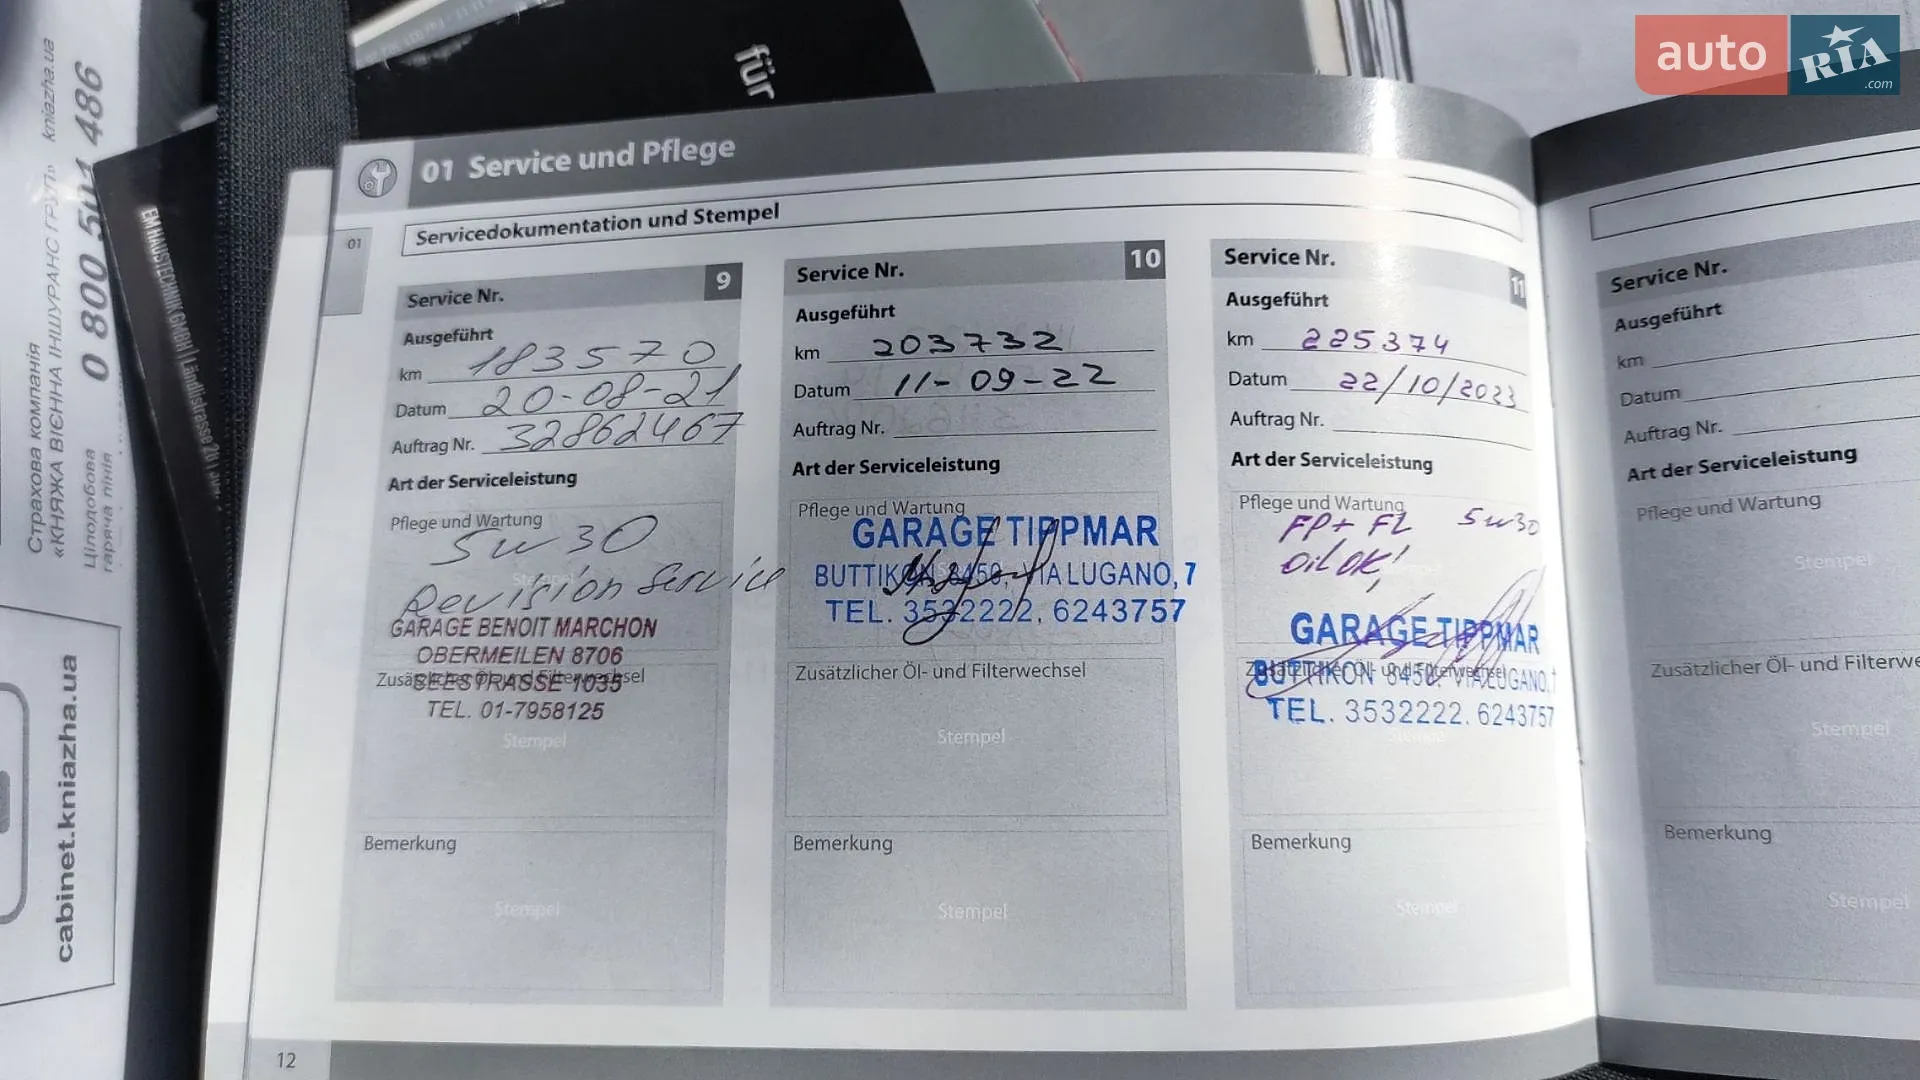 auto
RIA
.com
für
Страхова компанія
«КНЯЖА ВІЄННА ІНШУРАНС ГРУП» kniazha.ua
Цілодобова
гаряча лінія
0 800 501 486
cabinet.kniazha.ua
EM HAUSTECHNIK GMBH | Ländlistrasse 20
01 Service und Pflege
01
Servicedokumentation und Stempel
Service Nr. 9
Ausgeführt
km 183570
Datum 20-08-21
Auftrag Nr. 32862467
Art der Serviceleistung
Pflege und Wartung
5w30
Stempel
Revision Service
GARAGE BENOIT MARCHON
OBERMEILEN 8706
Zusätzlicher Öl- und Filterwechsel
SEESTRASSE 1035
TEL. 01-7958125
Stempel
Bemerkung
Stempel
Service Nr. 10
Ausgeführt
km 203732
Datum 11-09-22
Auftrag Nr.
Art der Serviceleistung
Pflege und Wartung
GARAGE TIPPMAR
BUTTIKON 8450, VIA LUGANO, 7
TEL. 3532222, 6243757
Zusätzlicher Öl- und Filterwechsel
Stempel
Bemerkung
Stempel
Service Nr. 11
Ausgeführt
km 225374
Datum 22/10/2023
Auftrag Nr.
Art der Serviceleistung
Pflege und Wartung
FP+ FL 5w30
Oil OK!
GARAGE TIPPMAR
Zusätzlicher Öl- und Filterwechsel
BUTTIKON 8450, VIA LUGANO, 7
TEL. 3532222. 6243757
Stempel
Bemerkung
Stempel
12
Service Nr.
Ausgeführt
km
Datum
Auftrag Nr.
Art der Serviceleistung
Pflege und Wartung
Stempel
Zusätzlicher Öl- und Filterwe
Stempel
Bemerkung
Stempel